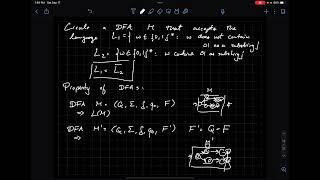 1:49 PM Sat Sep 17
Create a DFA M that accepts the
language L₁ = { w ∈ {0,1}* : w does not contain
01 as a substring }
L₂ = { w ∈ {0,1}* : w contains 01 as substring }
L₁ = L̅₂
Property of DFAs:
M
DFA M = (Q, Σ, δ, q₀, F)
⇒ L(M)
DFA M' = (Q, Σ, δ, q₀, F') F' = Q - F
⇒